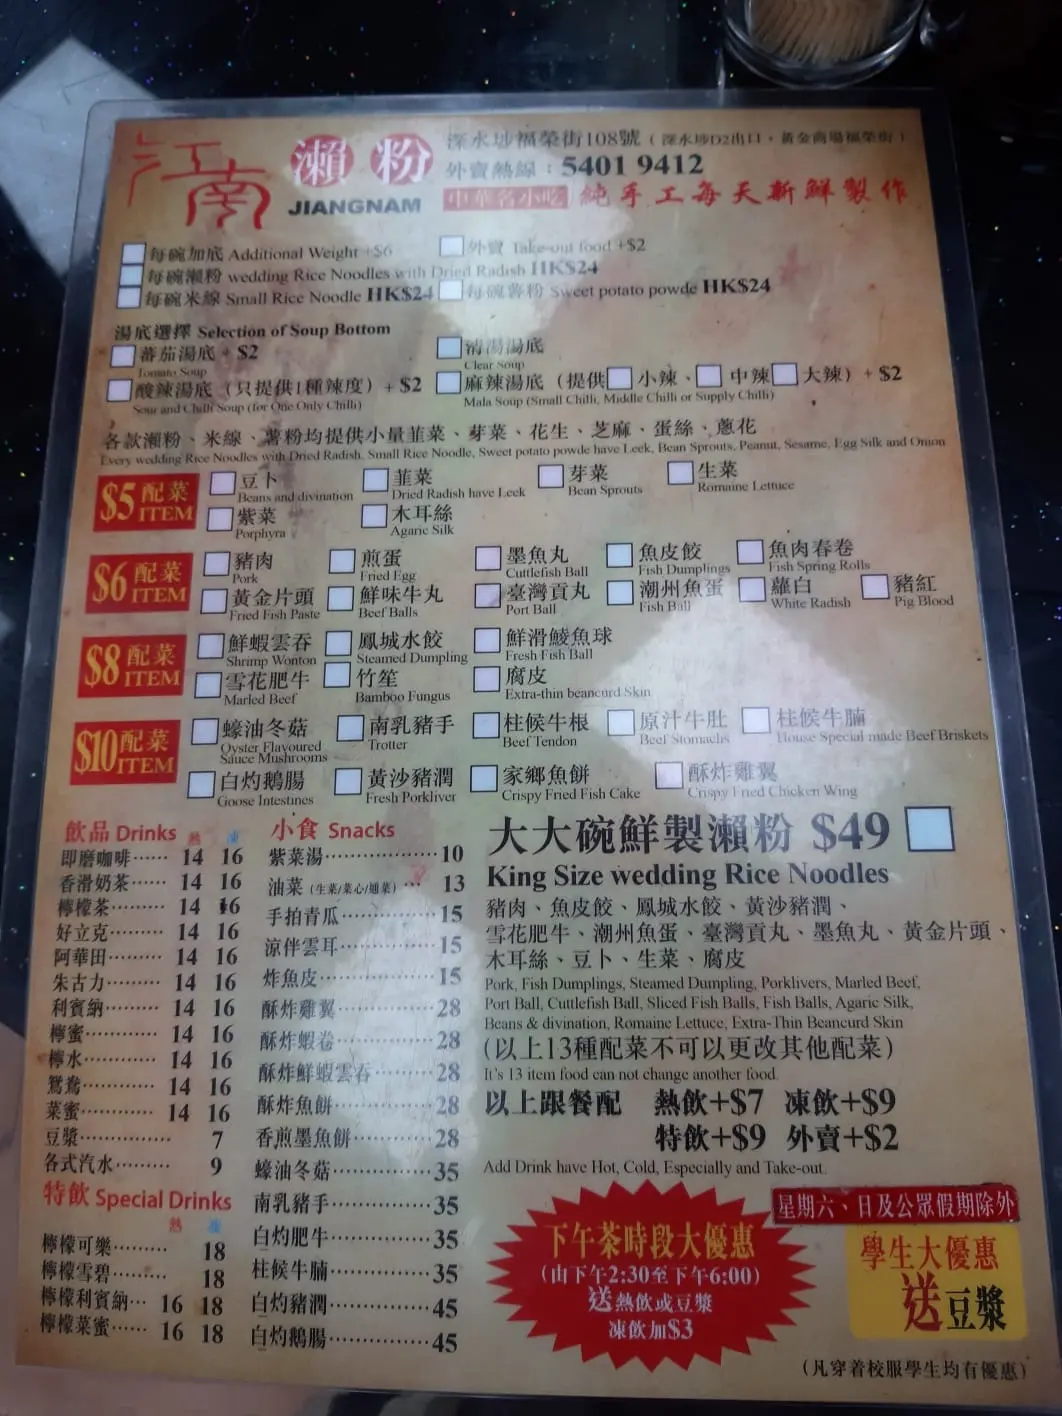 江南 瀨粉 JIANGNAM
深水埗福榮街108號（深水埗D2出口，黃金商場福榮街）
外賣熱線：5401 9412
中華名小吃 純手工每天新鮮製作
每碗加底 Additional Weight +$6 外賣 Take-out food +$2
每碗瀨粉 wedding Rice Noodles with Dried Radish HK$24
每碗米線 Small Rice Noodle HK$24 每碗薯粉 Sweet potato powde HK$24
湯底選擇 Selection of Soup Bottom
蕃茄湯底 + $2 清湯湯底
Tomato Soup Clear Soup
酸辣湯底（只提供1種辣度）+ $2 麻辣湯底（提供 小辣、 中辣 大辣）+ $2
Sour and Chilli Soup (for One Only Chilli) Mala Soup (Small Chilli, Middle Chilli or Supply Chilli)
各款瀨粉、米線、薯粉均提供小量韮菜、芽菜、花生、芝麻、蛋絲、蔥花
Every wedding Rice Noodles with Dried Radish, Small Rice Noodle, Sweet potato powde have Leek, Bean Sprouts, Peanut, Sesame, Egg Silk and Onion
$5 配菜 ITEM
豆卜 韮菜 芽菜 生菜
Beans and divination Dried Radish have Leek Bean Sprouts Romaine Lettuce
紫菜 木耳絲
Porphyra Agaric Silk
$6 配菜 ITEM
豬肉 煎蛋 墨魚丸 魚皮餃 魚肉春卷
Pork Fried Egg Cuttlefish Ball Fish Dumplings Fish Spring Rolls
黃金片頭 鮮味牛丸 臺灣貢丸 潮州魚蛋 蘿白 豬紅
Fried Fish Paste Beef Balls Port Ball Fish Ball White Radish Pig Blood
$8 配菜 ITEM
鮮蝦雲吞 鳳城水餃 鮮滑鯪魚球
Shrimp Wonton Steamed Dumpling Fresh Fish Ball
雪花肥牛 竹笙 腐皮
Marled Beef Bamboo Fungus Extra-thin beancurd Skin
$10 配菜 ITEM
蠔油冬菇 南乳豬手 柱候牛根 原汁牛肚 柱候牛腩
Oyster Flavoured Sauce Mushrooms Trotter Beef Tendon Beef Stomachs House Special made Beef Briskets
白灼鵝腸 黃沙豬潤 家鄉魚餅 酥炸雞翼
Goose Intestines Fresh Porkliver Crispy Fried Fish Cake Crispy Fried Chicken Wing
飲品 Drinks 熱 凍
即磨咖啡…… 14 16
香滑奶茶…… 14 16
檸檬茶……… 14 16
好立克……… 14 16
阿華田……… 14 16
朱古力……… 14 16
利賓納……… 14 16
檸蜜………… 14 16
檸水………… 14 16
鴛鴦………… 14 16
菜蜜………… 14 16
豆漿…………… 7
各式汽水……… 9
特飲 Special Drinks
熱 凍
檸檬可樂……… 18
檸檬雪碧……… 18
檸檬利賓納… 16 18
檸檬菜蜜…… 16 18
小食 Snacks
紫菜湯……………10
油菜（生菜/菜心/通菜）… 13
手拍青瓜…………15
涼伴雲耳…………15
炸魚皮……………15
酥炸雞翼…………28
酥炸蝦卷…………28
酥炸鮮蝦雲吞……28
酥炸魚餅…………28
香煎墨魚餅………28
蠔油冬菇…………35
南乳豬手…………35
白灼肥牛…………35
柱候牛腩…………35
白灼豬潤…………45
白灼鵝腸…………45
大大碗鮮製瀨粉 $49
King Size wedding Rice Noodles
豬肉、魚皮餃、鳳城水餃、黃沙豬潤、
雪花肥牛、潮州魚蛋、臺灣貢丸、墨魚丸、黃金片頭、
木耳絲、豆卜、生菜、腐皮
Pork, Fish Dumplings, Steamed Dumpling, Porklivers, Marled Beef,
Port Ball, Cuttlefish Ball, Sliced Fish Balls, Fish Balls, Agaric Silk,
Beans & divination, Romaine Lettuce, Extra-Thin Beancurd Skin
（以上13種配菜不可以更改其他配菜）
It's 13 item food can not change another food.
以上跟餐配 熱飲+$7 凍飲+$9
特飲+$9 外賣+$2
Add Drink have Hot, Cold, Especially and Take-out
下午茶時段大優惠
（由下午2:30至下午6:00）
送熱飲或豆漿
凍飲加$3
星期六、日及公眾假期除外
學生大優惠
送豆漿
（凡穿着校服學生均有優惠）